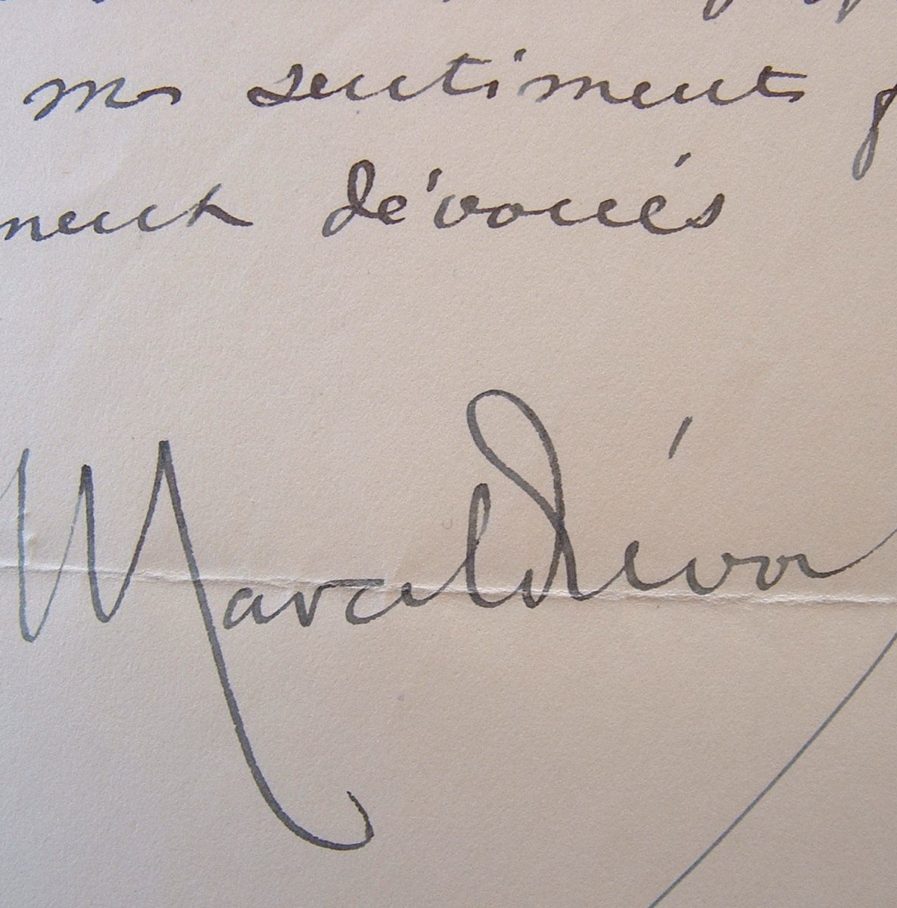 mes sentiments
ment dévoués
Marcel Diéva